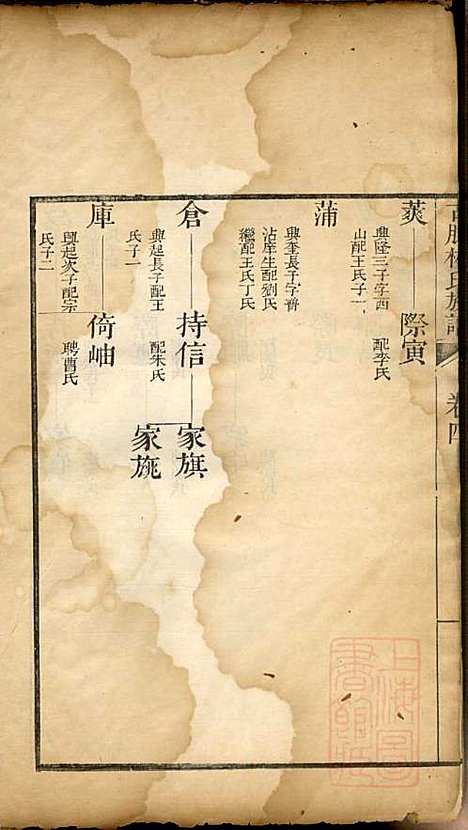 林氏族譜 卷四 一
莢 際寅
興隆三子字西 配李氏
山配王氏子一
蒲
興奎長子字普
沾庠生配劉氏
繼配王氏丁氏
倉 持信 家旗
興起長子配王 配朱氏 家旐
氏子一
庫 倚岫
興起次子配宗 聘曹氏
氏子二
上海圖書館藏